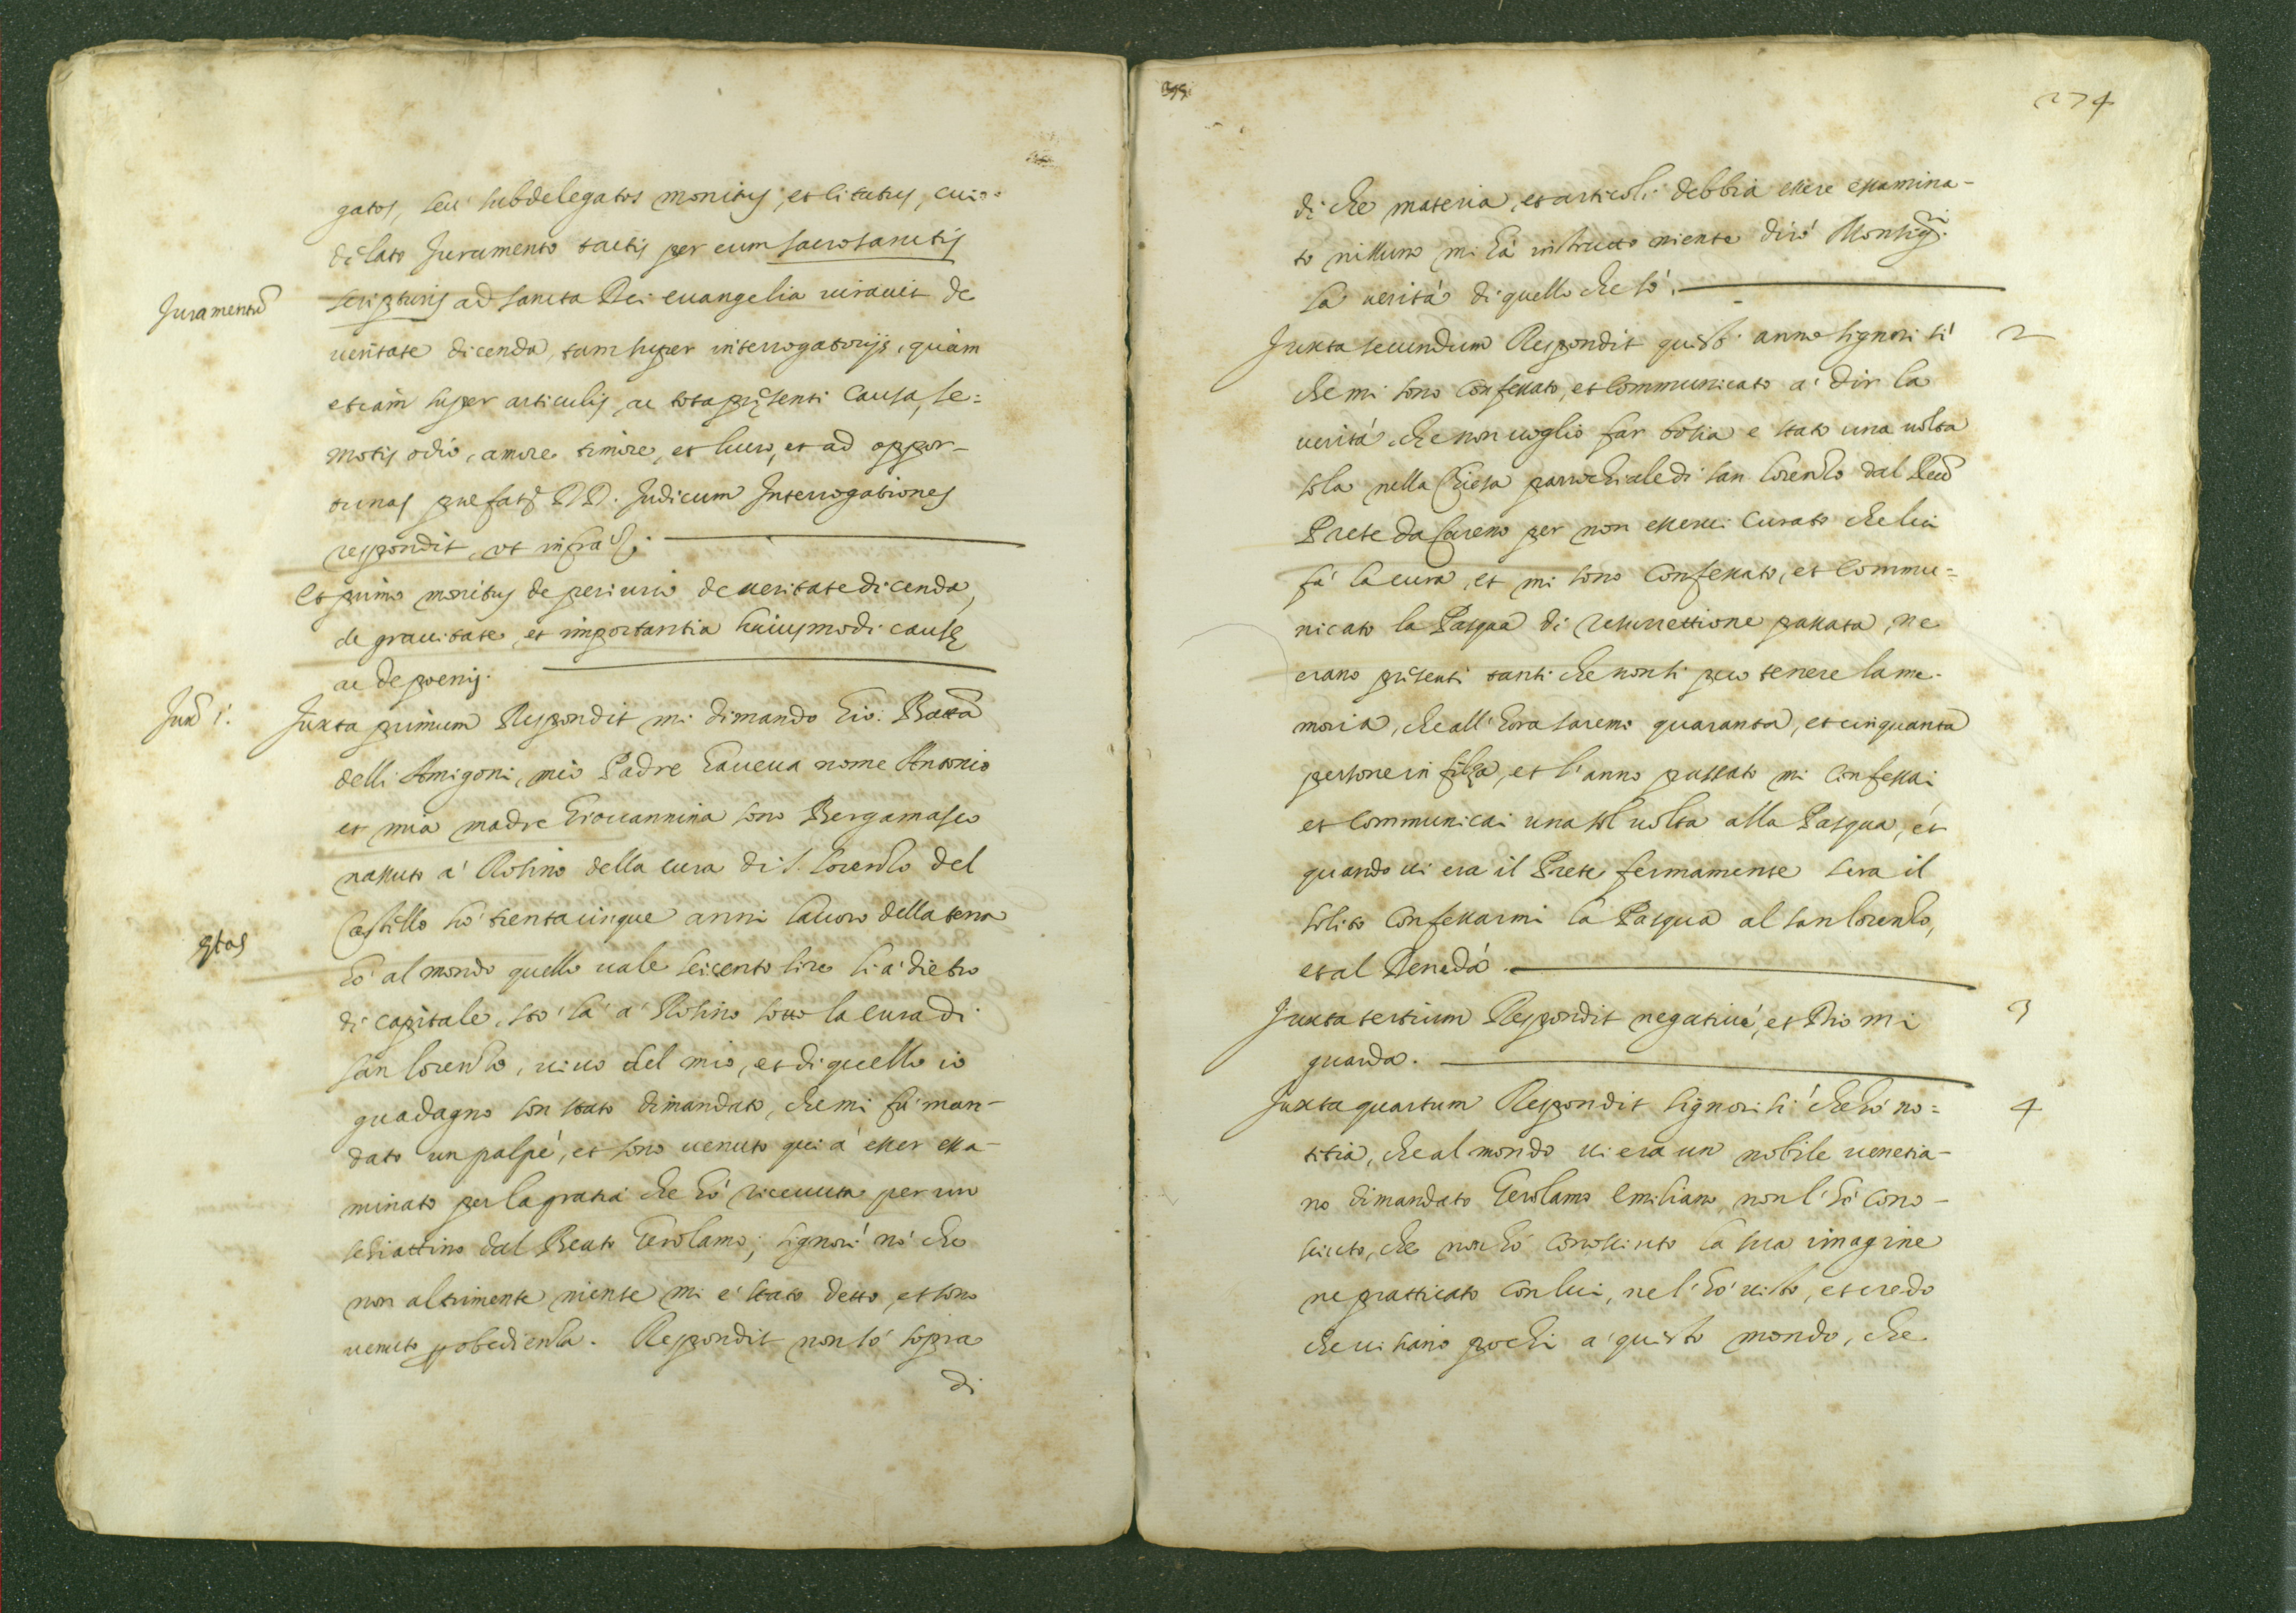 gatos, seu subdelegatos monitus, et citatus, cui
delato Juramento tactis per eum sacrosanctis
Juramentũ
scripturis ad sancta Dei evangelia iuravit de
veritate dicenda, tam super interrogatorijs, quàm
etiam super articulis, ac tota pręsenti causa, se=
motis odio, amore timore, et lucro, et ad oppor-
tunas prefatoȝ DD. Judicum Interrogationes
respondit, ut infra
Et primo monitus de periurio de veritate dicenda,
de gravitate, et importantia huiusmodi causę
ac de poenis.
Jux͂ 1.
Juxta primum Respondit mi dimando Gio: Batta
delli Amigoni, mio Padre haveva nome Antonio
et mia madre Giovannina sono Bergamasco
nassuto a' Rosino della cura di S. Lorenzo del
Castello hò trentacinque anni lavoro della terra
ętas
hò al mondo quello vale seicento lire lì à dietro
di capitale, stò là à Rosino sotto la cura di
san Lorenzo, vivo del mio, et di quello io
guadagno son stato dimandato, che mi fù man-
dato un palpè, et sono venuto qui à esser essa-
minato per la gratia che hò ricevuta per un
schiattino dal Beato Gerolamo; signori nò che
non altrimente niente mi è stato detto, et sono
venuto p obedienza. Respondit non sò sopra
di
274
di che materia, et articoli debbia essere essamina-
to nissuno mi hà instrutto niente dirò Monsigri.
la verità di quello che sò.
2
Juxta secundum Respondit questo anno signori sì
che mi sono confessato, et communicato a' dir la
verità che non voglio far bosia è stato una volta
sola nella Chiesa parochiale di san Lorenzo dal Revdo
Prete da Careno per non esservi Curato che lui
fà la cura, et mi sono confessato, et commu=
nicato la Pasqua di resurrettione passata, ne
erano presenti tanti che non si puo tenere la me-
moria, che all'hora saremo quaranta, et cinquanta
persone in filza, et l'anno passato mi confessai
et communicai una sol volta alla Pasqua, et
quando vi era il Prete fermamente sera il
solito confessarmi la Pasqua al san Lorenzo,
et al Denedà.
3
Juxta tertium Respondit negativè, et Dio mi
guarda.
4
Juxta quartum Respondit signori sì che hò no=
titia, che al mondo vi era un nobile venetia-
no dimandato Gerolamo Emiliano, non l'hò cono-
sciuto, che non hò conosciuto la sua imagine
ne pratticato con lui, ne l'hò visto, et credo
che vi siano pochi a' questo mondo, che